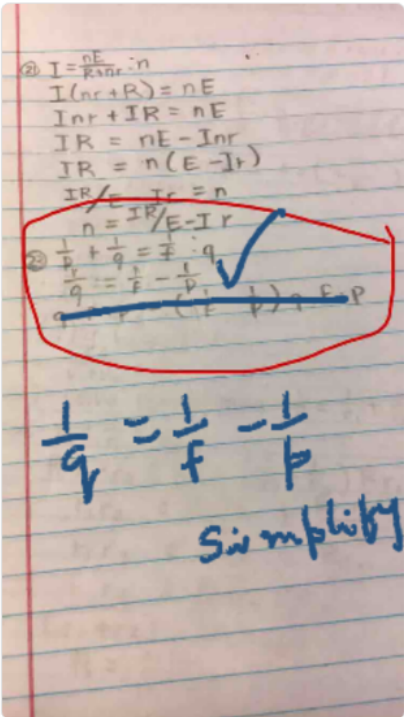 ㉑ I = nE/R+nr : n
I(nr + R) = nE
Inr + IR = nE
IR = nE - Inr
IR = n(E - Ir)
IR/E - Ir = n
n = IR/E-I r
1/p + 1/q = 1/f : q
1/q = 1/f - 1/p
1/q = 1/f - 1/p
Simplify